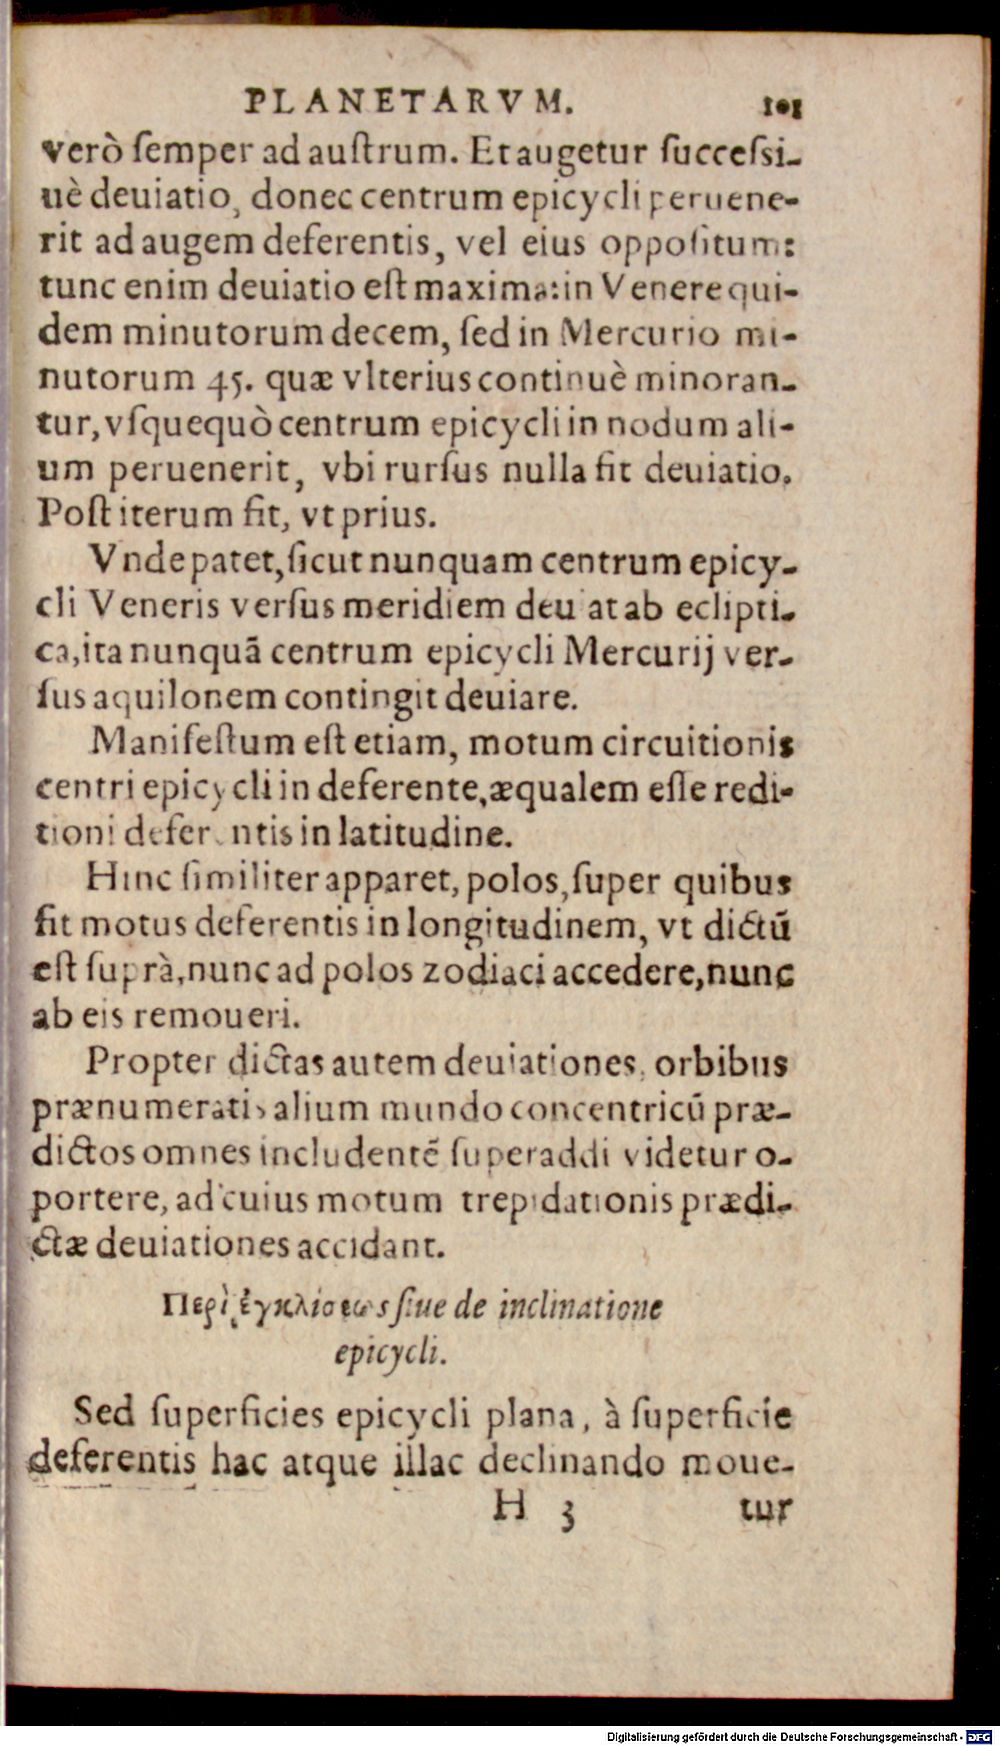 PLANETARVM. 101
verò ſemper ad auſtrum. Et augetur ſucceſsi-
uè deuiatio, donec centrum epicycli peruene-
rit ad augem deferentis, vel eius oppoſitum:
tunc enim deuiatio eſt maxima: in Venere qui-
dem minutorum decem, ſed in Mercurio mi-
nutorum 45. quæ vlterius continuè minoran-
tur, vſquequò centrum epicycli in nodum ali-
um peruenerit, vbi rurſus nulla fit deuiatio.
Poſt iterum fit, vt prius.
Vnde patet, ſicut nunquam centrum epicy-
cli Veneris verſus meridiem deuiat ab eclipti-
ca, ita nunquã centrum epicycli Mercurij ver-
ſus aquilonem contingit deuiare.
Manifeſtum eſt etiam, motum circuitionis
centri epicycli in deferente, æqualem eſſe redi-
tioni deferentis in latitudine.
Hinc ſimiliter apparet, polos, ſuper quibus
fit motus deferentis in longitudinem, vt dictũ
eſt ſuprà, nunc ad polos zodiaci accedere, nunc
ab eis remoueri.
Propter dictas autem deuiationes, orbibus
prænumeratis alium mundo concentricũ præ-
dictos omnes includentẽ ſuperaddi videtur o-
portere, ad cuius motum trepidationis prædi-
ctæ deuiationes accidant.
Περὶ ἐγκλίσεως ſiue de inclinatione
epicycli.
Sed ſuperficies epicycli plana, à ſuperficie
deferentis hac atque illac declinando moue-
H 3 tur
Digitalisierung gefördert durch die Deutsche Forschungsgemeinschaft - DFG